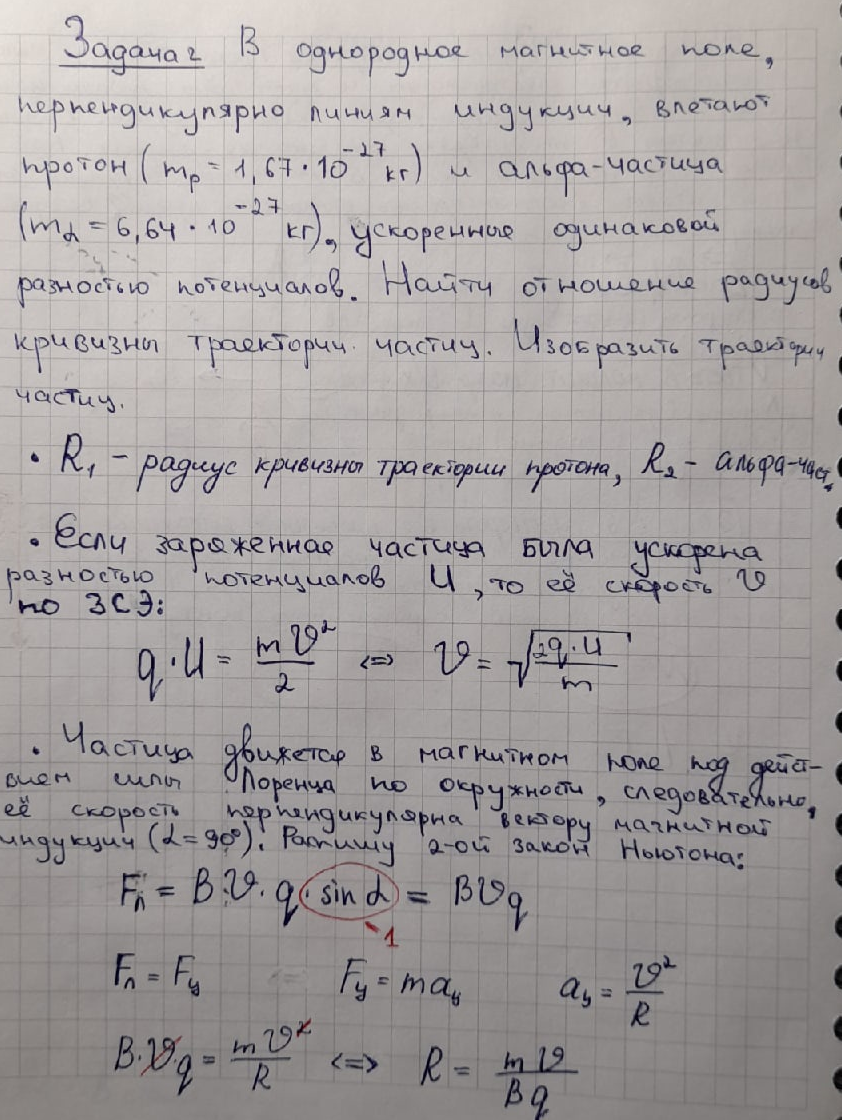 Задача 2 В однородное магнитное поле,
перпендикулярно линиям индукции, влетают
протон (mₚ = 1,67 · 10⁻²⁷ кг) и альфа-частица
(m_α = 6,64 · 10⁻²⁷ кг), ускоренные одинаковой
разностью потенциалов. Найти отношение радиусов
кривизны траектории частиц. Изобразить траектории
частиц.
• R₁ - радиус кривизны траектории протона, R₂ - альфа-част.
• Если заряженная частица была ускорена
разностью потенциалов U, то её скорость υ
по ЗСЭ:
q·U = mυ²/2 <=> υ = √(2q·U/m)
• Частица движется в магнитном поле под дейст-
вием силы Лоренца по окружности, следовательно,
её скорость перпендикулярна вектору магнитной
индукции (α = 90°). Распишу 2-ой закон Ньютона:
Fл = B·υ·q·sin α = Bυq
1
Fл = Fу Fу = maу aу = υ²/R
B·υ·q = mυ²/R <=> R = mυ/Bq